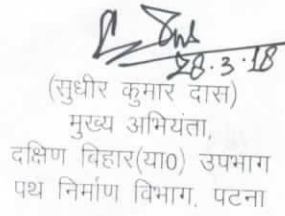 28.3.18
(सुधीर कुमार दास)
मुख्य अभियंता,
दक्षिण बिहार(या0) उपभाग
पथ निर्माण विभाग, पटना